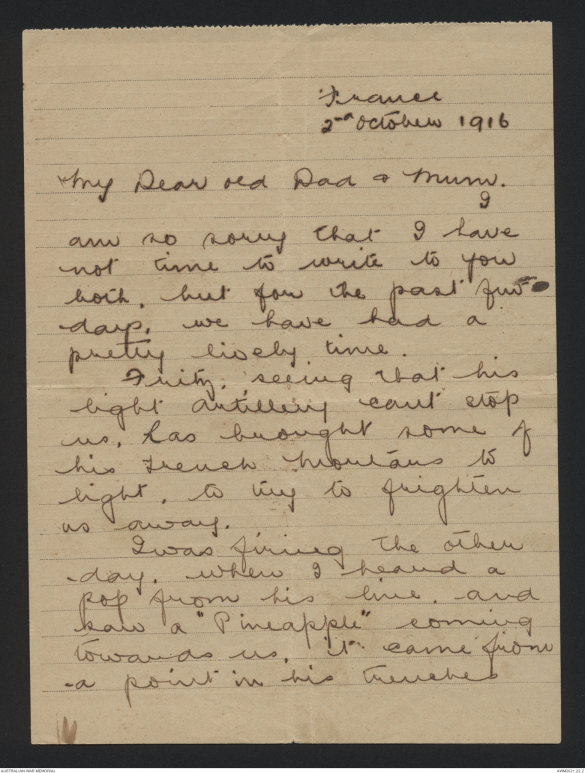 France
2nd October 1916
My Dear old Dad & Mum.
I
am so sorry that I have
not time to write to you
both, but for the past few
days, we have had a
pretty lively time.
Fritz, seeing that his
light artillery cant stop
us, has brought some of
his Trench Mortars to
light, to try to frighten
us away.
I was firing the other
day, when I heard a
pop from his line, and
saw a "Pineapple" coming
towards us, it came from
a point in his trenches
AUSTRALIAN WAR MEMORIAL